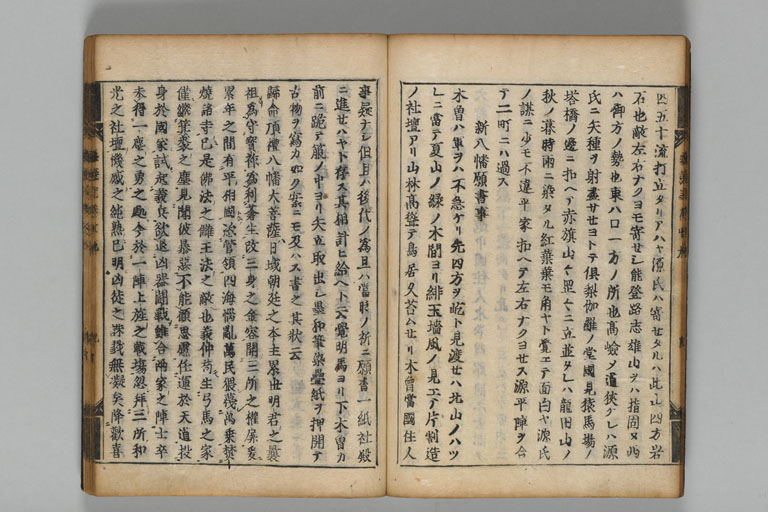 四五十流打立タリアハヤ源氏ハ寄セタルハ此山四方岩
石也敵左右ナクヨモ寄セシ能登路志雄山ヲハ指固ヌ
ハ御方ノ勢也東ハ口一方ノ所也髙嶮ノ道狹ケレハ源
氏ニ矢種ヲ射盡サセヨトテ倶梨伽羅ノ堂國見猿馬場ノ
塔橋ノ邊ニ扣ヘテ赤旗山々里々ニ立並タレハ龍田山ノ
秋ノ暮時雨ニ染タル紅葉葉モ角ヤト覺エテ面白ヤ源氏
ノ謀ニ少モ不違平家扣ヘテ左右ナクヨセス源平陣ヲ合
テ二町ニハ過ス
新八幡願書事
木曽ハ軍ヲハ不急ケリ先四方ヲ屹ト見渡セハ北山ノハツ
レニ當テ夏山ノ緑ノ木間ヨリ緋玉墻風ノ見エテ片削造
ノ社壇アリ山林髙聳テ鳥居久苔ムセリ木曽當國住人
ナレ但且ハ後代ノ為且ハ當時ノ祈ニ願書一紙社殿
ニ進セハヤト存ス其相計ヒ給ヘト云覺明馬ヨリ下木曽カ
前ニ跪テ箙ノ中ヨリ矢立取出シ墨和筆染疊紙ヲ押開テ
古物ヲ寫カ如ク案ニモ及ハス書之其狀云
歸命頂禮八幡大菩薩日域朝廷之本主累世明君之曩
祖為守寳祚為利蒼生改三身之金容開三所之權扉爰
累年之間有平相國恣管領四海惱亂萬民猥蔑萬乗焚
燒諸寺已是佛法之讎王法之敵也義仲苟生弓馬之家
僅繼箕裘之塵見聞彼暴惡不能顧思慮任運於天道投
身於國家試起義兵欲退凶器闘戰雖合兩家之陣士卒
未得一塵之勇之處今於一陣上旌之戰場忽拜三所和
光之社壇機感之純熟已明凶徒之誅戮無疑矣降歡喜